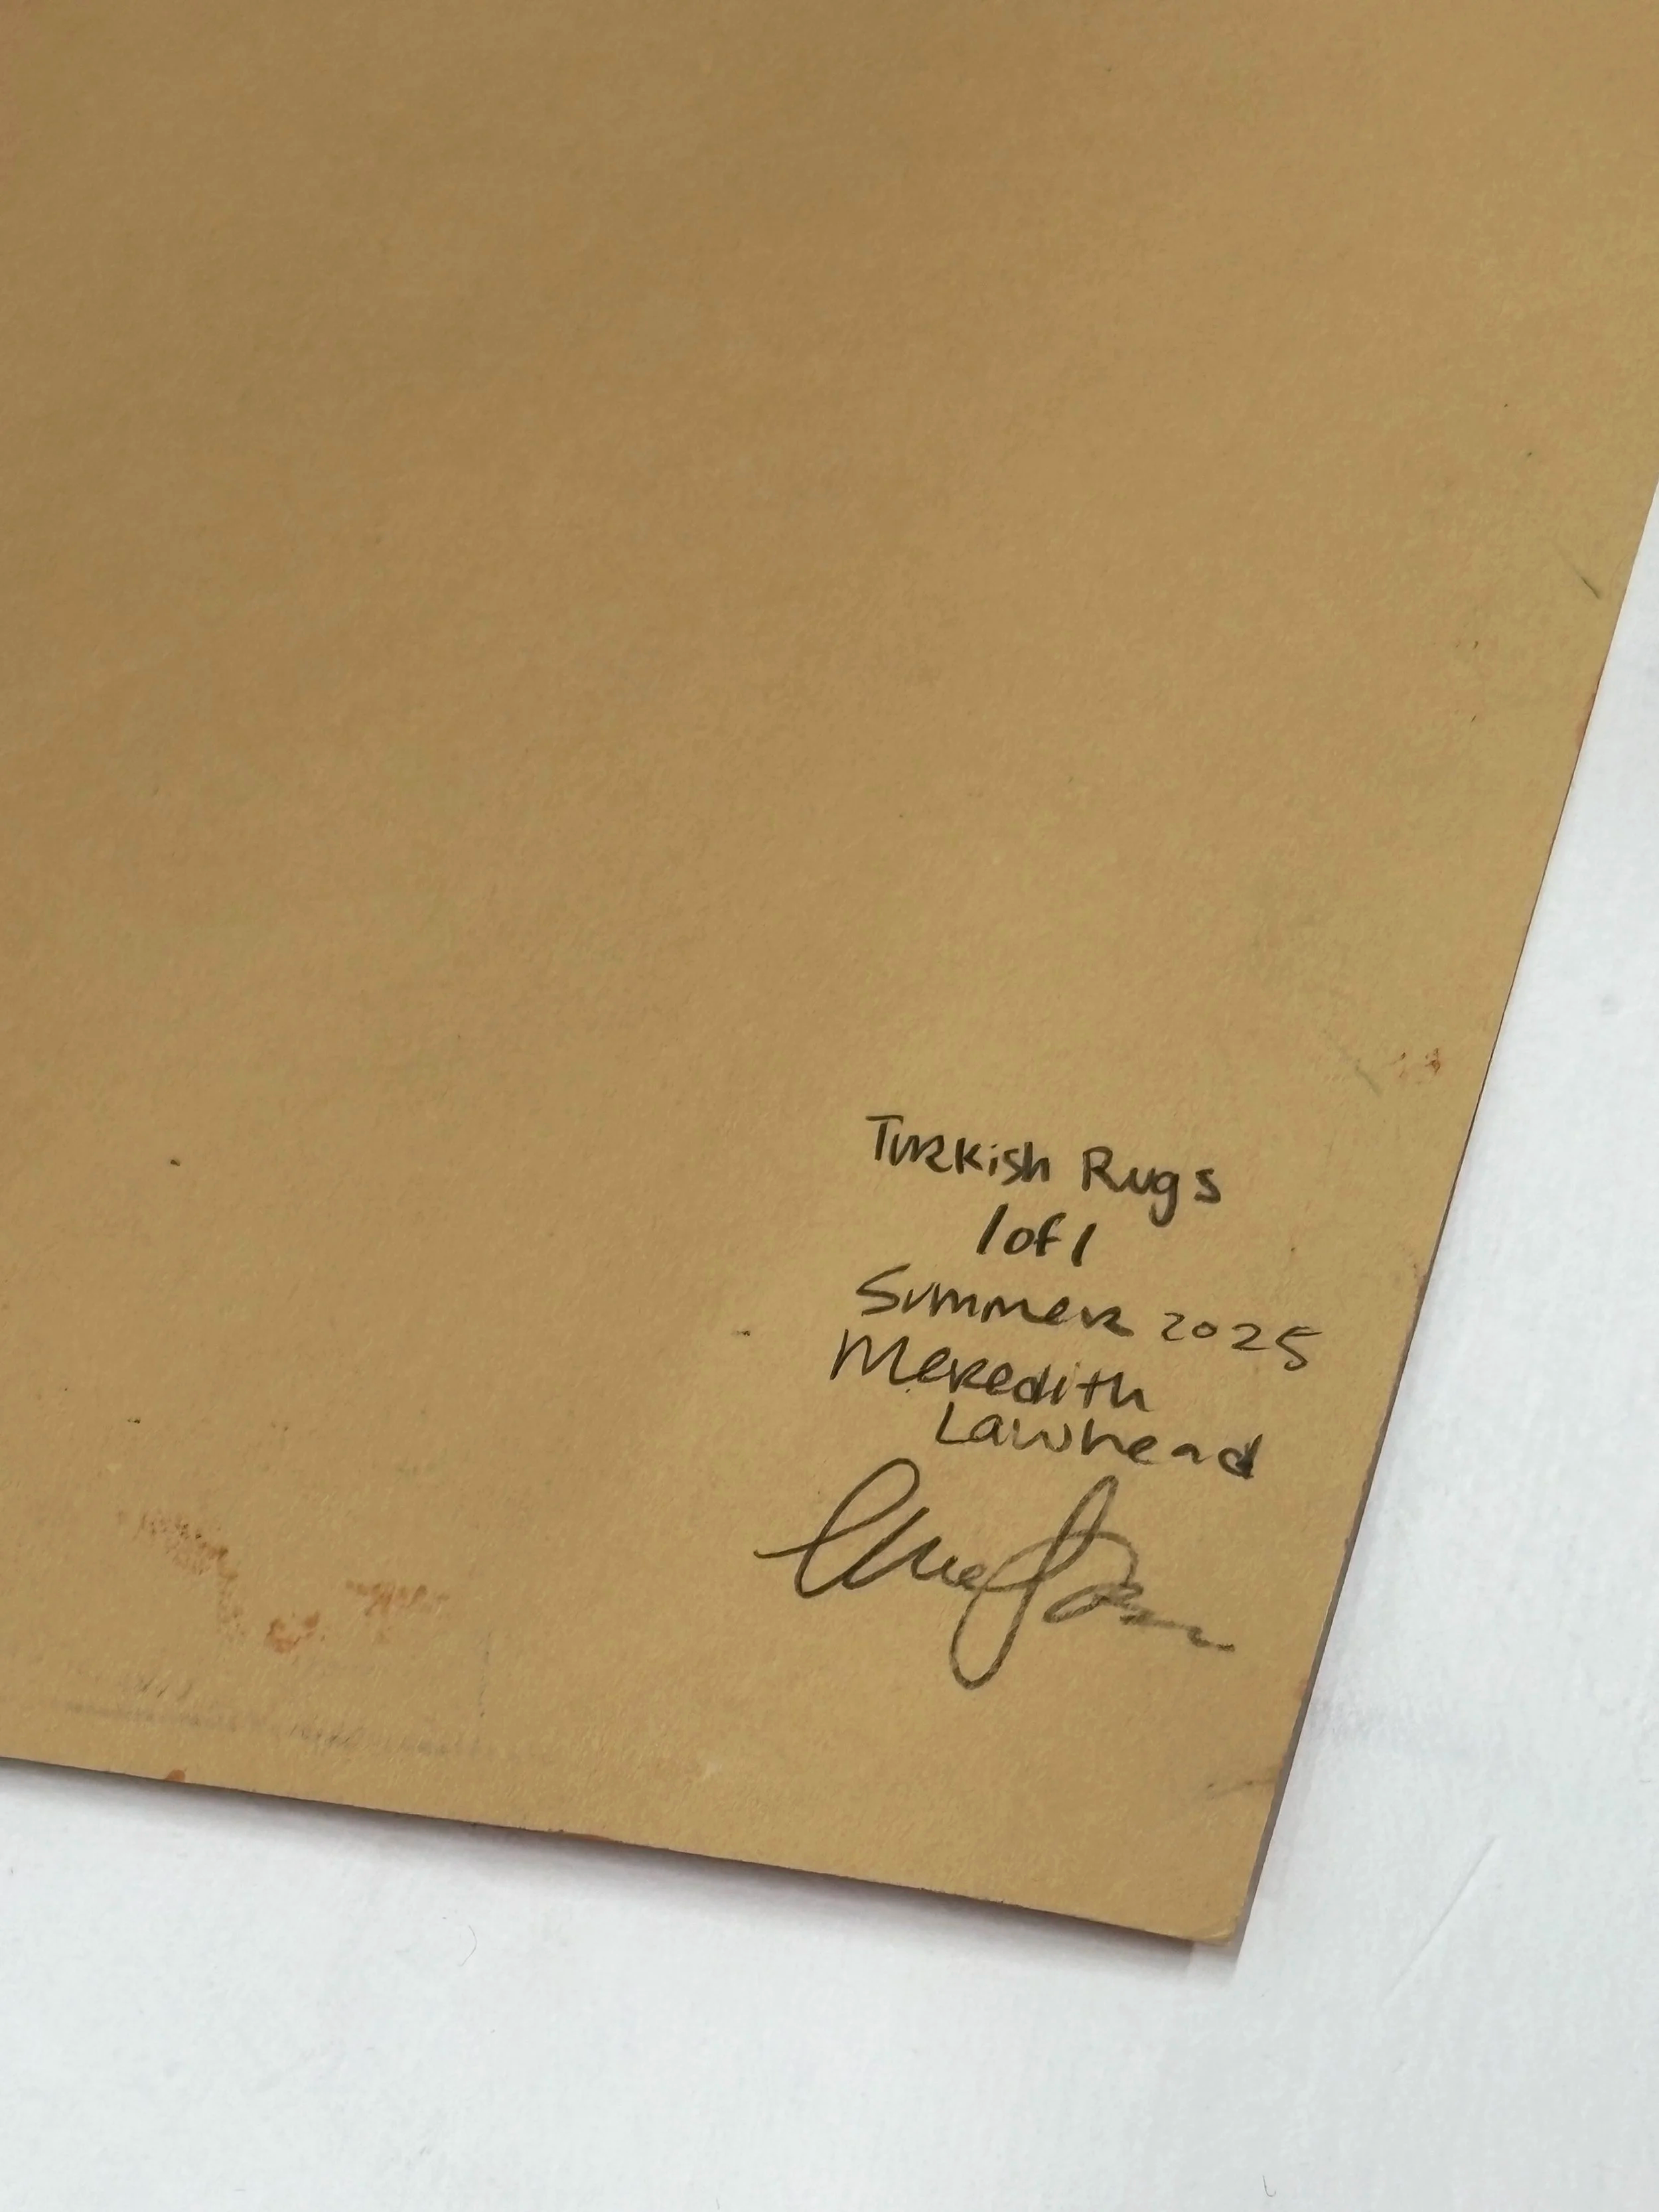 Turkish Rugs
1 of 1
Summer 2025
Meredith
Lawhead